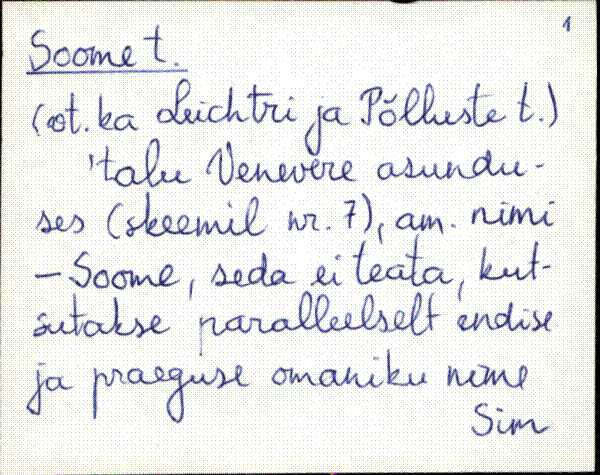 1
Soome t.
(vt. ka Leichtri ja Põlluste t.)
'talu Venevere asundu-
ses (skeemil nr. 7), am. nimi
– Soome, seda ei teata, kut-
sutakse paralleelselt endise
ja praeguse omaniku nime
Sim